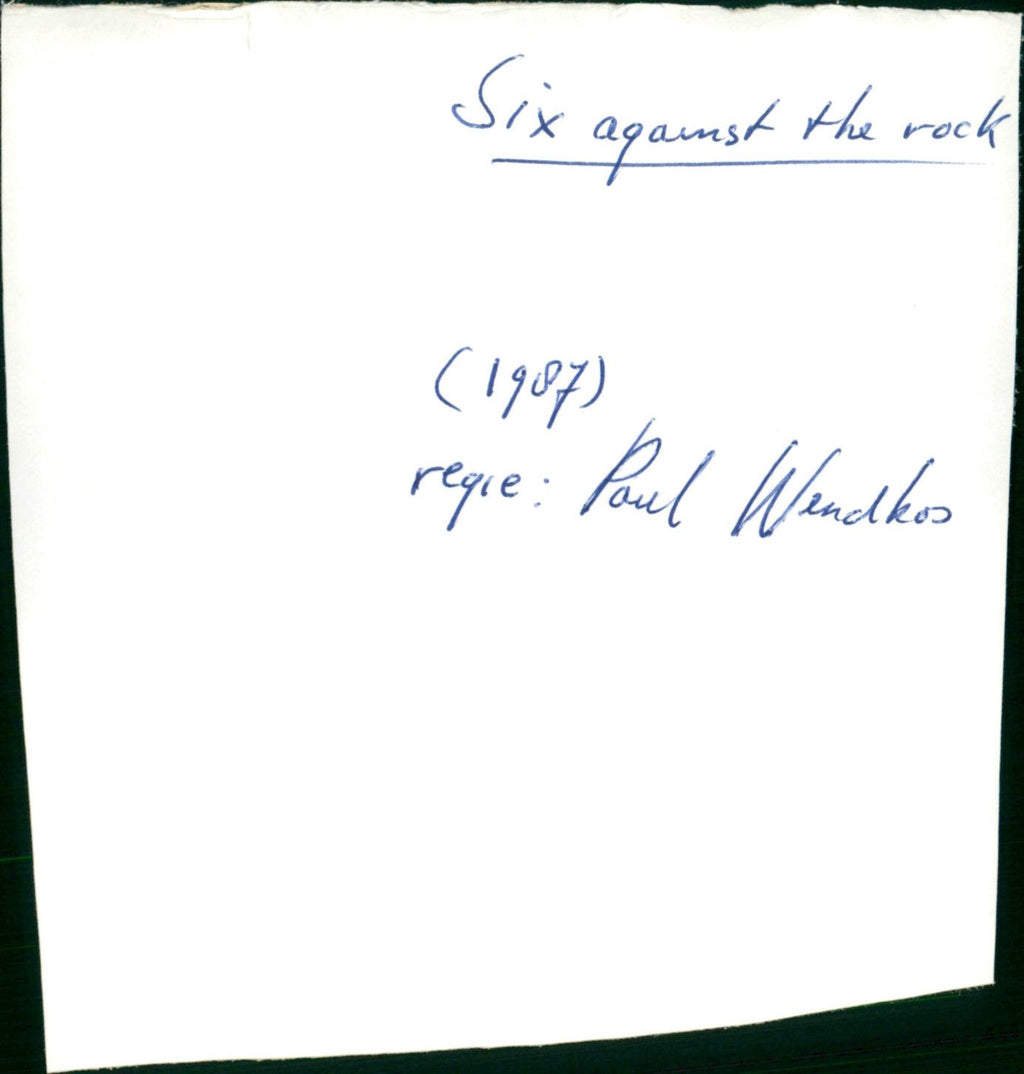 Six against the rock
(1987)
regie: Paul Wendkos